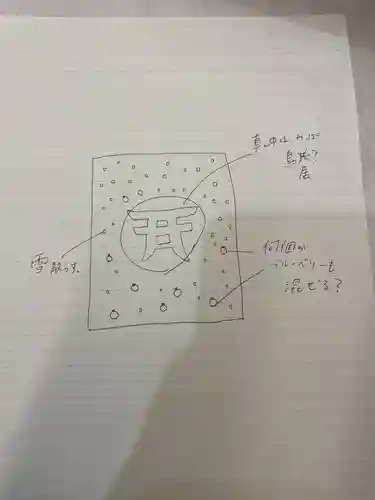 真ん中は
鳥
居
雪散らす。
何個か
ブルーベリーも
混ぜる?